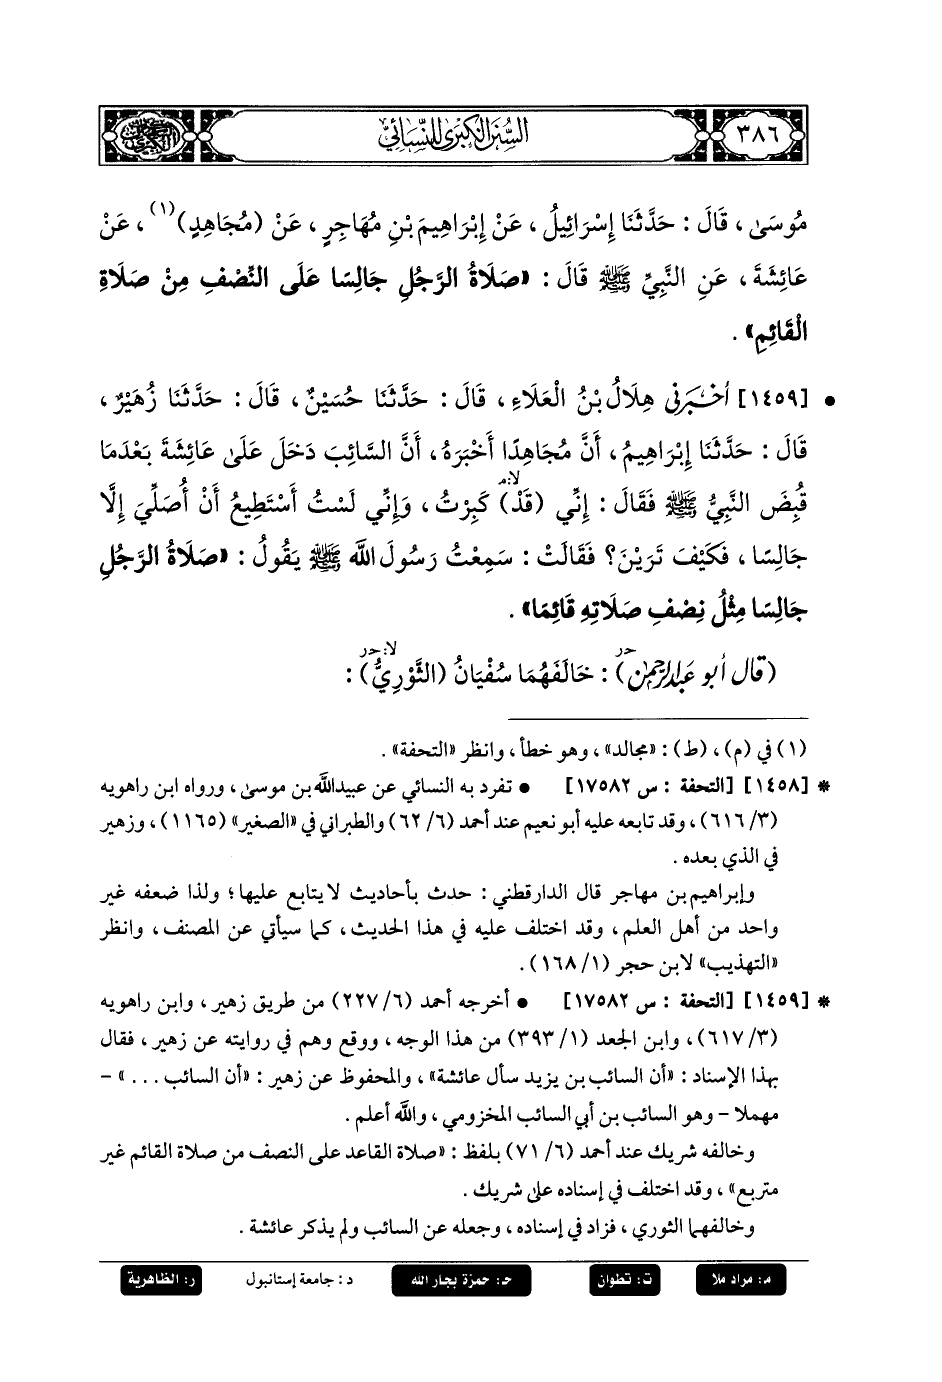 ٣٨٦
السنن الكبرى للنسائي
مُوسَىٰ ، قَالَ : حَدَّثَنَا إِسْرَائِيلُ ، عَنْ إِبْرَاهِيمَ بْنِ مُهَاجِرٍ ، عَنْ (مُجَاهِدٍ)(١) ، عَنْ
عَائِشَةَ ، عَنِ النَّبِيِّ ﷺ قَالَ : «صَلَاةُ الرَّجُلِ جَالِسًا عَلَى النِّصْفِ مِنْ صَلَاةِ
الْقَائِمِ» .
• [١٤٥٩] أَخْبَرَنِي هِلَالُ بْنُ الْعَلَاءِ ، قَالَ : حَدَّثَنَا حُسَيْنٌ ، قَالَ : حَدَّثَنَا زُهَيْرٌ ،
قَالَ : حَدَّثَنَا إِبْرَاهِيمُ ، أَنَّ مُجَاهِدًا أَخْبَرَهُ ، أَنَّ السَّائِبَ دَخَلَ عَلَىٰ عَائِشَةَ بَعْدَمَا
قُبِضَ النَّبِيُّ ﷺ فَقَالَ : إِنِّي (قَدْ) لا:م كَبِرْتُ ، وَإِنِّي لَسْتُ أَسْتَطِيعُ أَنْ أُصَلِّيَ إِلَّا
جَالِسًا ، فَكَيْفَ تَرَيْنَ؟ فَقَالَتْ : سَمِعْتُ رَسُولَ اللَّهِ ﷺ يَقُولُ : «صَلَاةُ الرَّجُلِ
جَالِسًا مِثْلُ نِصْفِ صَلَاتِهِ قَائِمًا» .
(قال أبو عبدالرحمن) حر : خَالَفَهُمَا سُفْيَانُ (الثَّوْرِيُّ) لا:حر :
(١) في (م) ، (ط) : «مجالد» ، وهو خطأ ، وانظر «التحفة» .
* [١٤٥٨] [التحفة : س ١٧٥٨٢] • تفرد به النسائي عن عبيدالله بن موسىٰ ، ورواه ابن راهويه
(٣/ ٦١٦) ، وقد تابعه عليه أبو نعيم عند أحمد (٦/ ٦٢) والطبراني في «الصغير» (١١٦٥) ، وزهير
في الذي بعده .
وإبراهيم بن مهاجر قال الدارقطني : حدث بأحاديث لا يتابع عليها؛ ولذا ضعفه غير
واحد من أهل العلم ، وقد اختلف عليه في هذا الحديث ، كما سيأتي عن المصنف ، وانظر
«التهذيب» لابن حجر (١/ ١٦٨) .
* [١٤٥٩] [التحفة : س ١٧٥٨٢] • أخرجه أحمد (٦/ ٢٢٧) من طريق زهير ، وابن راهويه
(٣/ ٦١٧) ، وابن الجعد (١/ ٣٩٣) من هذا الوجه ، ووقع وهم في روايته عن زهير ، فقال
بهذا الإسناد : «أن السائب بن يزيد سأل عائشة» ، والمحفوظ عن زهير : «أن السائب ...» -
مهملا - وهو السائب بن أبي السائب المخزومي ، والله أعلم .
وخالفه شريك عند أحمد (٦/ ٧١) بلفظ : «صلاة القاعد على النصف من صلاة القائم غير
متربع» ، وقد اختلف في إسناده علىٰ شريك .
وخالفهما الثوري ، فزاد في إسناده ، وجعله عن السائب ولم يذكر عائشة .
م: مراد ملا
ت: تطوان
حـ: حمزة بجار الله
د: جامعة إستانبول
ر: الظاهرية